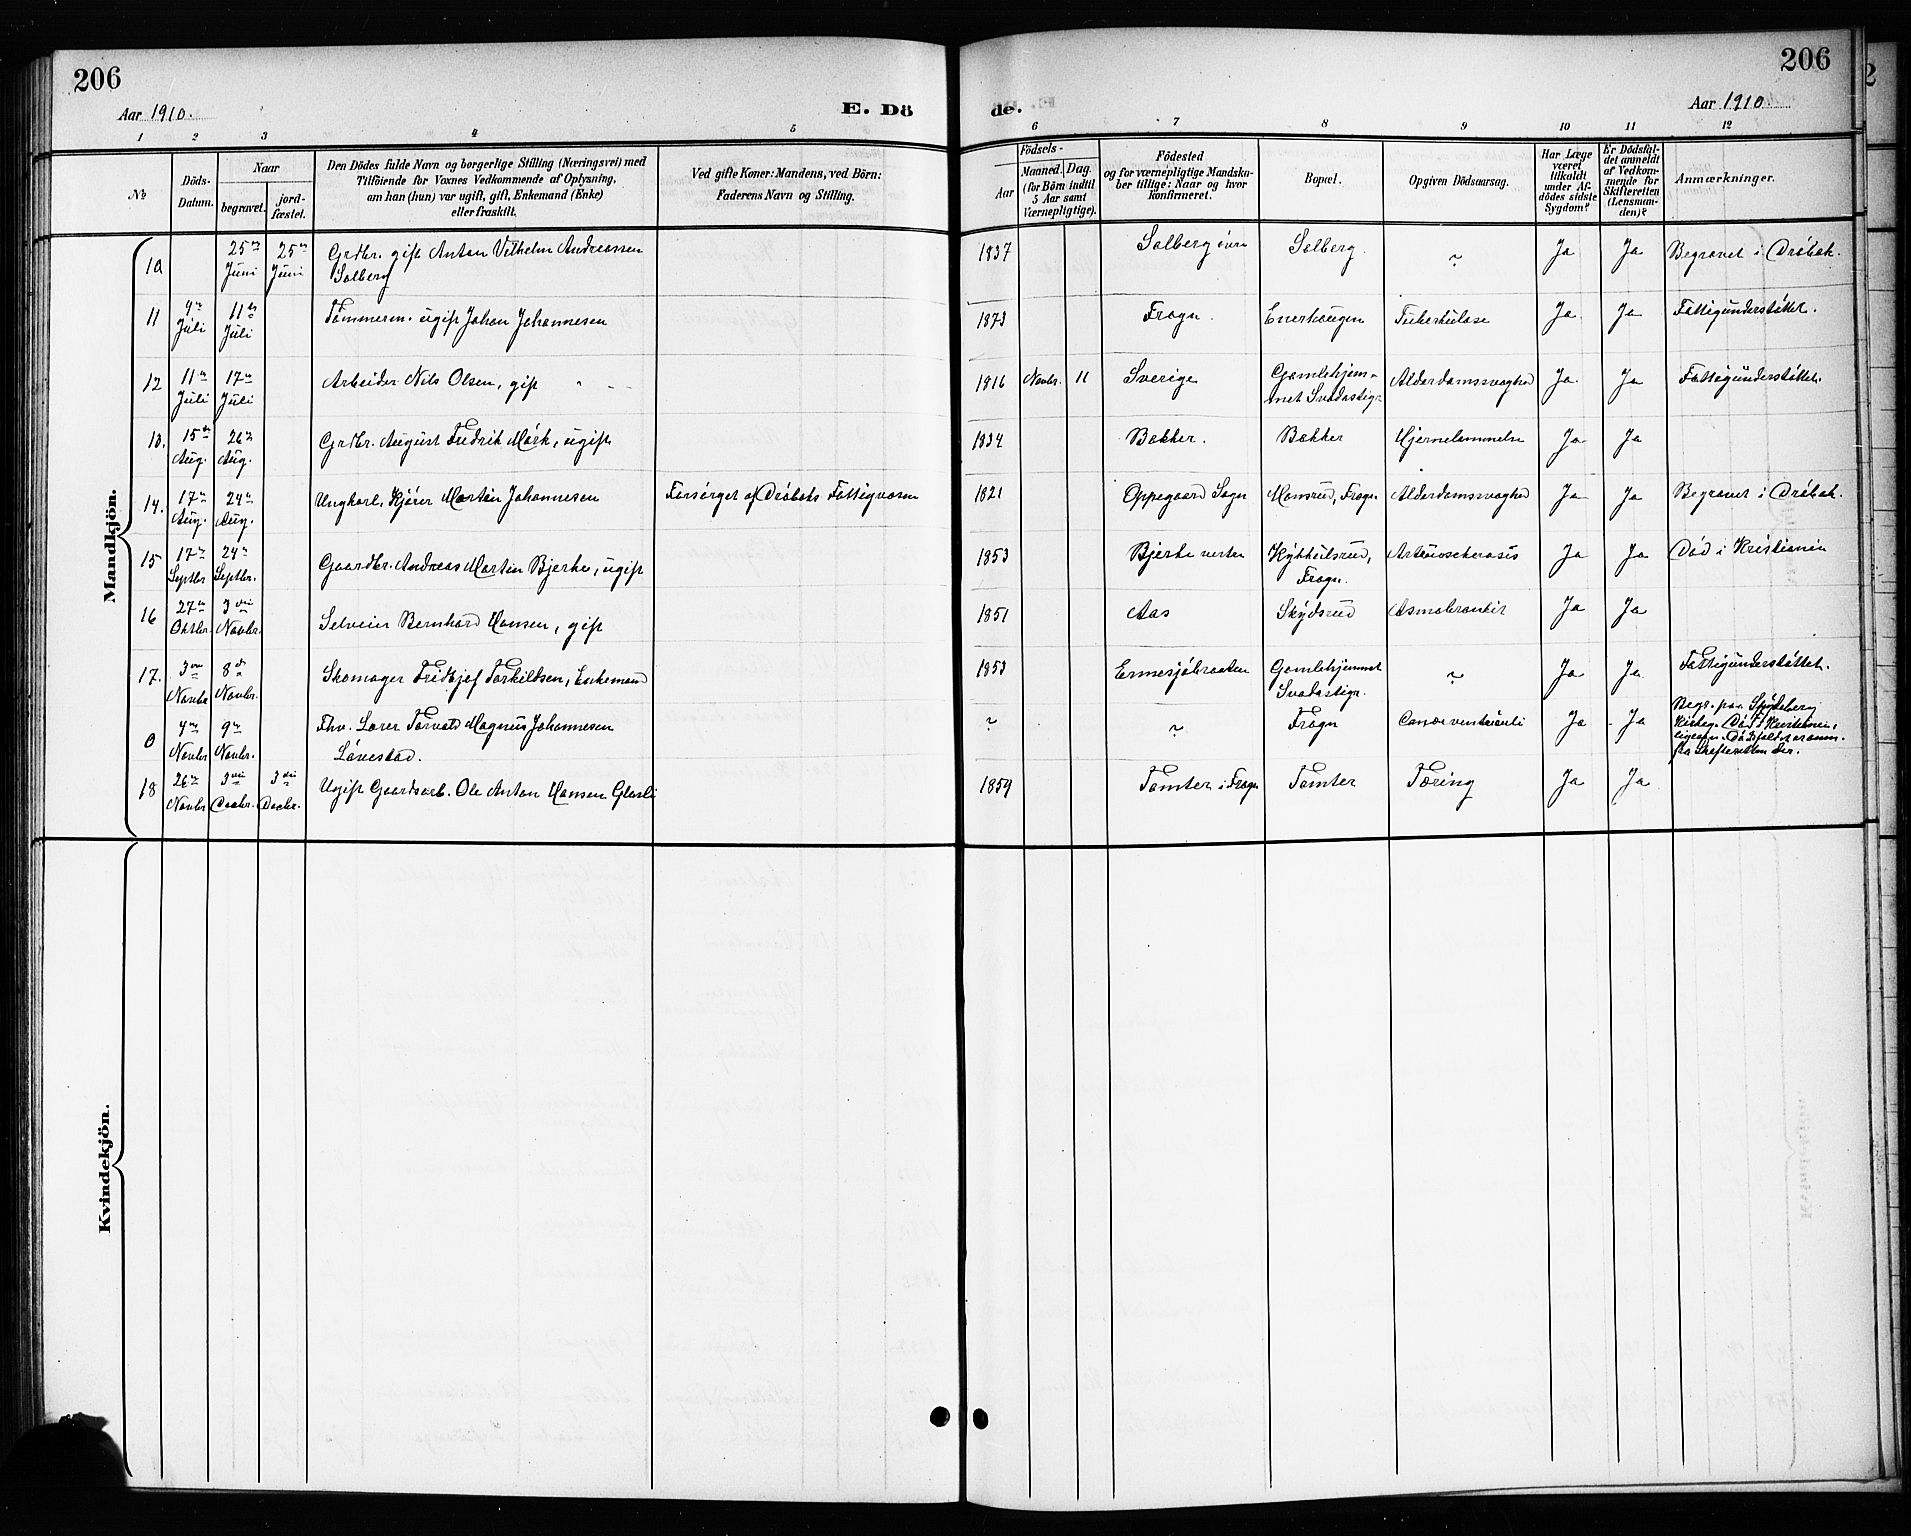 206
Aar 1910.
E. Dö
de.
206
Aar 1910
1 2 3 4 5 6 7 8 9 10 11 12
No
Döds-
Datum.
Naar
begravet.
jord-
fæstet.
Den Dödes fulde Navn og borgerlige Stilling (Næringsvei) med
Tilföiende for Voxnes Vedkommende af Oplysning,
om han (hun) var ugift, gift, Enkemand (Enke)
eller fraskilt.
Ved gifte Koner: Mandens, ved Börn:
Faderens Navn og Stilling.
Födsels-
Aar
Maaned. Dag.
(for Börn indtil
5 Aar samt
Værnepligtige).
Födested
og for værnepligtige Mandska-
ber tillige: Naar og hvor
konfirmeret.
Bopæl.
Opgiven Dödsaarsag.
Har Læge
været
tilkaldt
under Af-
dödes sidste
Sygdom?
Er Dödsfal-
det anmeldt
af Vedkom-
mende for
Skifteretten
(Lensman-
den)?
Anmærkninger.
Mandkjön.
10 25de Juni 25de Juni Grdbr. gift Anton Vilhelm Andreassen
Solberg
1837 Solberg övre Solberg. ~ Ja Ja Begravet i Dröbak.
11 9de Juli 11te Juli Tömmerm. ugift Johan Johannesen
1873 Frogn. Enerhaugen Tuberkulose Ja Ja Fattigunderstöttet.
12 11te Juli 17de Juli Arbeider Nils Olsen, gift
1816 Novbr. 11 Sverige Gamlehjem-
met Svadastigr. Alderdomssvaghed Ja Ja Fattigunderstöttet.
13. 15de Aug. 26de Aug. Grdbr. August Fredrik Mörk, ugift
1834 Bakker. Bakker Hjernelammelse Ja Ja
14. 17de Aug. 24de Aug. Ungkarl, Kjörer Martin Johannesen Forsörget af Dröbaks Fattigvæsen
1821 Oppegaard Sogn Mansrud, Frogn Alderdomssvaghed Ja Ja Begravet i Dröbak.
15 17de Septbr 24de Septbr. Gaardbr. Andreas Martin Bjerke, ugift
1853 Bjerke vestre Frogn. Ja Ja Död i Kristiania
16 27de Oktbr. 3die Novbr. Selveier Bernhard Hansen, gift
1851 Aas Skydsrud Ja Ja
17. 3die Novbr 8de Novbr. Skomager Fridtjof Torkildsen, Enkemand
1853 Ermesjöbraaten Gamlehjemmet
Svadastigr. ~ Ja Ja Fattigunderstöttet.
0 4de Novbr 9de Novbr. Fhv. Lærer Torvald Magnus Johannesen
Lövestad.
~ ~ Frogn Ja Ja Begr. paa Spydeberg
Kirkeg. Död i Kristiania,
fra Skifteretten der.
18 26de Novbr 3die Decbr. 3die Decbr. Ugift Gaardsarb. Ole Anton Hansen Glosli
1859 Tomter i Frogn Tomter Tæring Ja Ja
Kvindekjön.